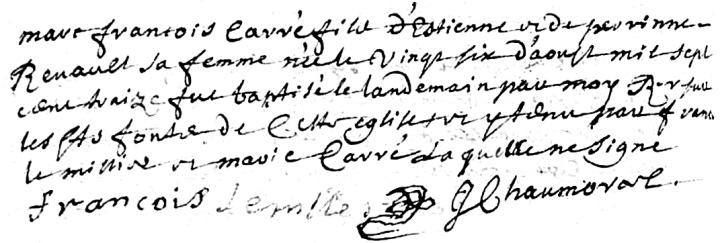 marc francois Carré fils D'Estienne et de perrinne
Renault sa femme née le Vingt six d'aoust mil sept
cent traize fut baptisé le landemain par moy Rr sur
les sts fonts de Cette eglise et y tenu par frans
le mistre et marie Carré Laquelle ne signe
francois Lemistre J Chaumoral.